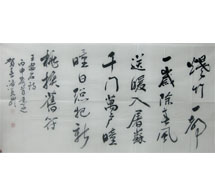 爆竹
一歲除春風
送暖入屠蘇
千門萬戶曈
曈日總把新
桃換舊符
王安石詩
丙申